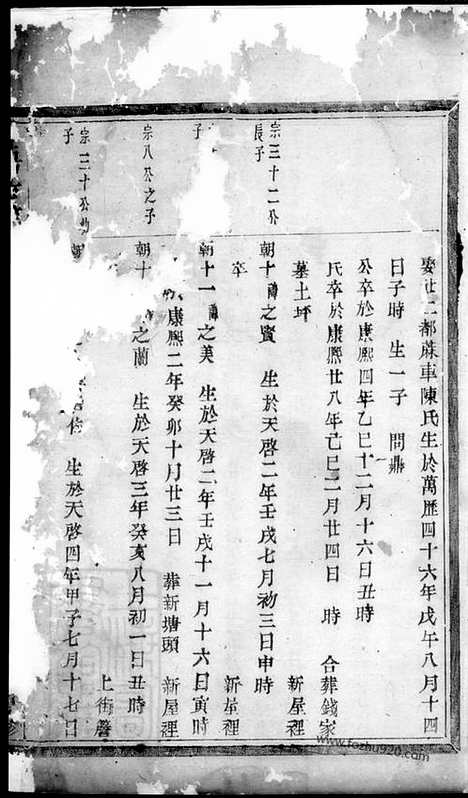 娶廿二都蔴車陳氏生於萬歷四十六年戊午八月十四
日子時 生一子 問鼎
公卒於康熙四年乙巳十二月十六日丑時
氏卒於康熙廿八年己巳二月廿四日 時 合葬錢家
墓土坪 新屋裡
宗三十二公
長子
朝十 諱之賓 生於天啓二年壬戌七月初三日申時
卒 新屋裡
子
朝十一 諱之美 生於天啓二年壬戌十一月十六日寅時
康熙二年癸卯十月廿三日 葬新塘頭 新屋裡
宗八公之子
朝十 之蘭 生於天啓三年癸亥八月初一日丑時
上街磬
宗三十公
子
生於天啓四年甲子七月十七日
www.fozhu920.com